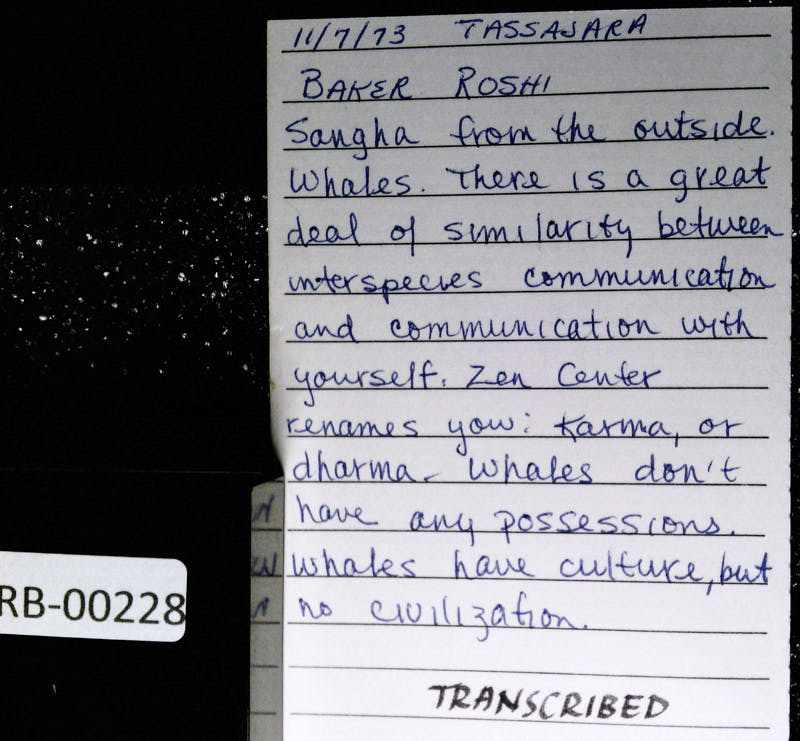 11/7/73 TASSAJARA
BAKER ROSHI
Sangha from the outside.
Whales. There is a great
deal of similarity between
interspecies communication
and communication with
yourself. Zen Center
renames you: Karma, or
dharma. Whales don't
have any possessions.
Whales have culture, but
no civilization.
TRANSCRIBED
RB-00228